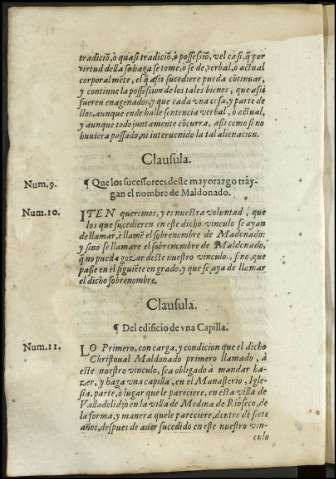 tradiciõ, ò quasi tradiciõ, ò possessiõ, vel casi, q̃ por
virtud della se haga se tome, ò se de, verbal, ò actual
corporalmẽte, el q̃ assi sucediere pueda cõtinuar,
y continue la possession de los tales bienes, que assi
fueren enagenados, y que cada vna cosa, y parte de
llos, aunque ende halle sentencia verbal, ò actual,
y aunque todo juntamente cõcurra, assi como si no
huuiera passado, ni interuenido la tal alienacion.
Clausula.
Num. 9. ¶ Que los sucessores deste mayorazgo tray-
gan el nombre de Maldonado.
Num. 10. ITEN queremos, y es nuestra voluntad, que
los que sucedieren en este dicho vinculo se ayan
de llamar, è llamẽ el sobrenombre de Maldonado:
y sino se llamare el sobrenombre de Maldonado,
q no pueda gozar deste nuestro vinculo, sino que
passe en el siguiẽte en grado, y que se aya de llamar
el dicho sobrenombre.
Clausula.
¶ Del edificio de vna Capilla.
Num. 11. LO Primero, con carga, y condicion que el dicho
Christoual Maldonado primero llamado, à
este nuestro vinculo, sea obligado à mandar ha-
zer, y haga vna capilla, en el Monasterio, Igle-
sia, parte, ò lugar que le pareciere, en esta villa de
Valladolid, ò en la villa de Medina de Rioseco, de
la forma, y manera que le pareciere, dentro de siete
años, despues de auer sucedido en este nuestro vin-
culo